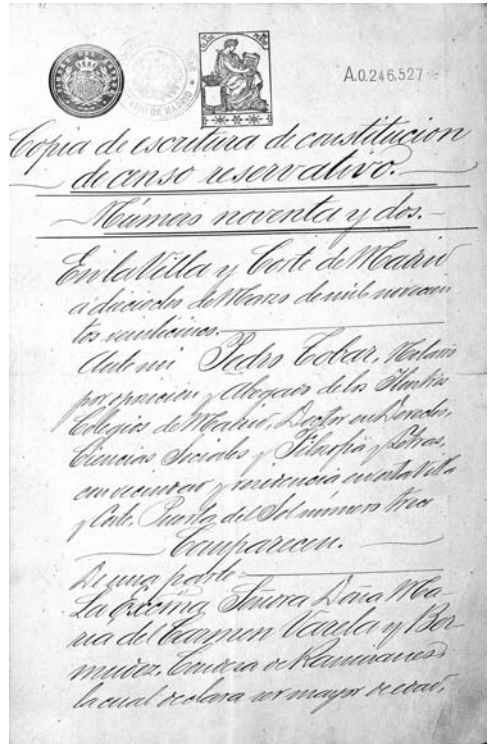 A.0.246.527
Copia de escritura de constitucion
de censo reservativo.
Número noventa y dos.
En la Villa y Corte de Madrid
a dieciocho de Marzo de mil novecien
tos veinticinco.
Ante mi Pedro Tobar, Notario
por oposición y Abogado de los Ilustres
Colegios de Madrid, Doctor en Derecho,
Ciencias Sociales y Filosofía y Letras,
con vecindad y residencia en esta Villa
y Corte, Puerta del Sol número trece
Comparecen.
De una parte
La Excma Señora Doña Ma-
ria del Carmen Varela y Ber
mudez, Condesa de Ramiranes
la cual declara ser mayor de edad,